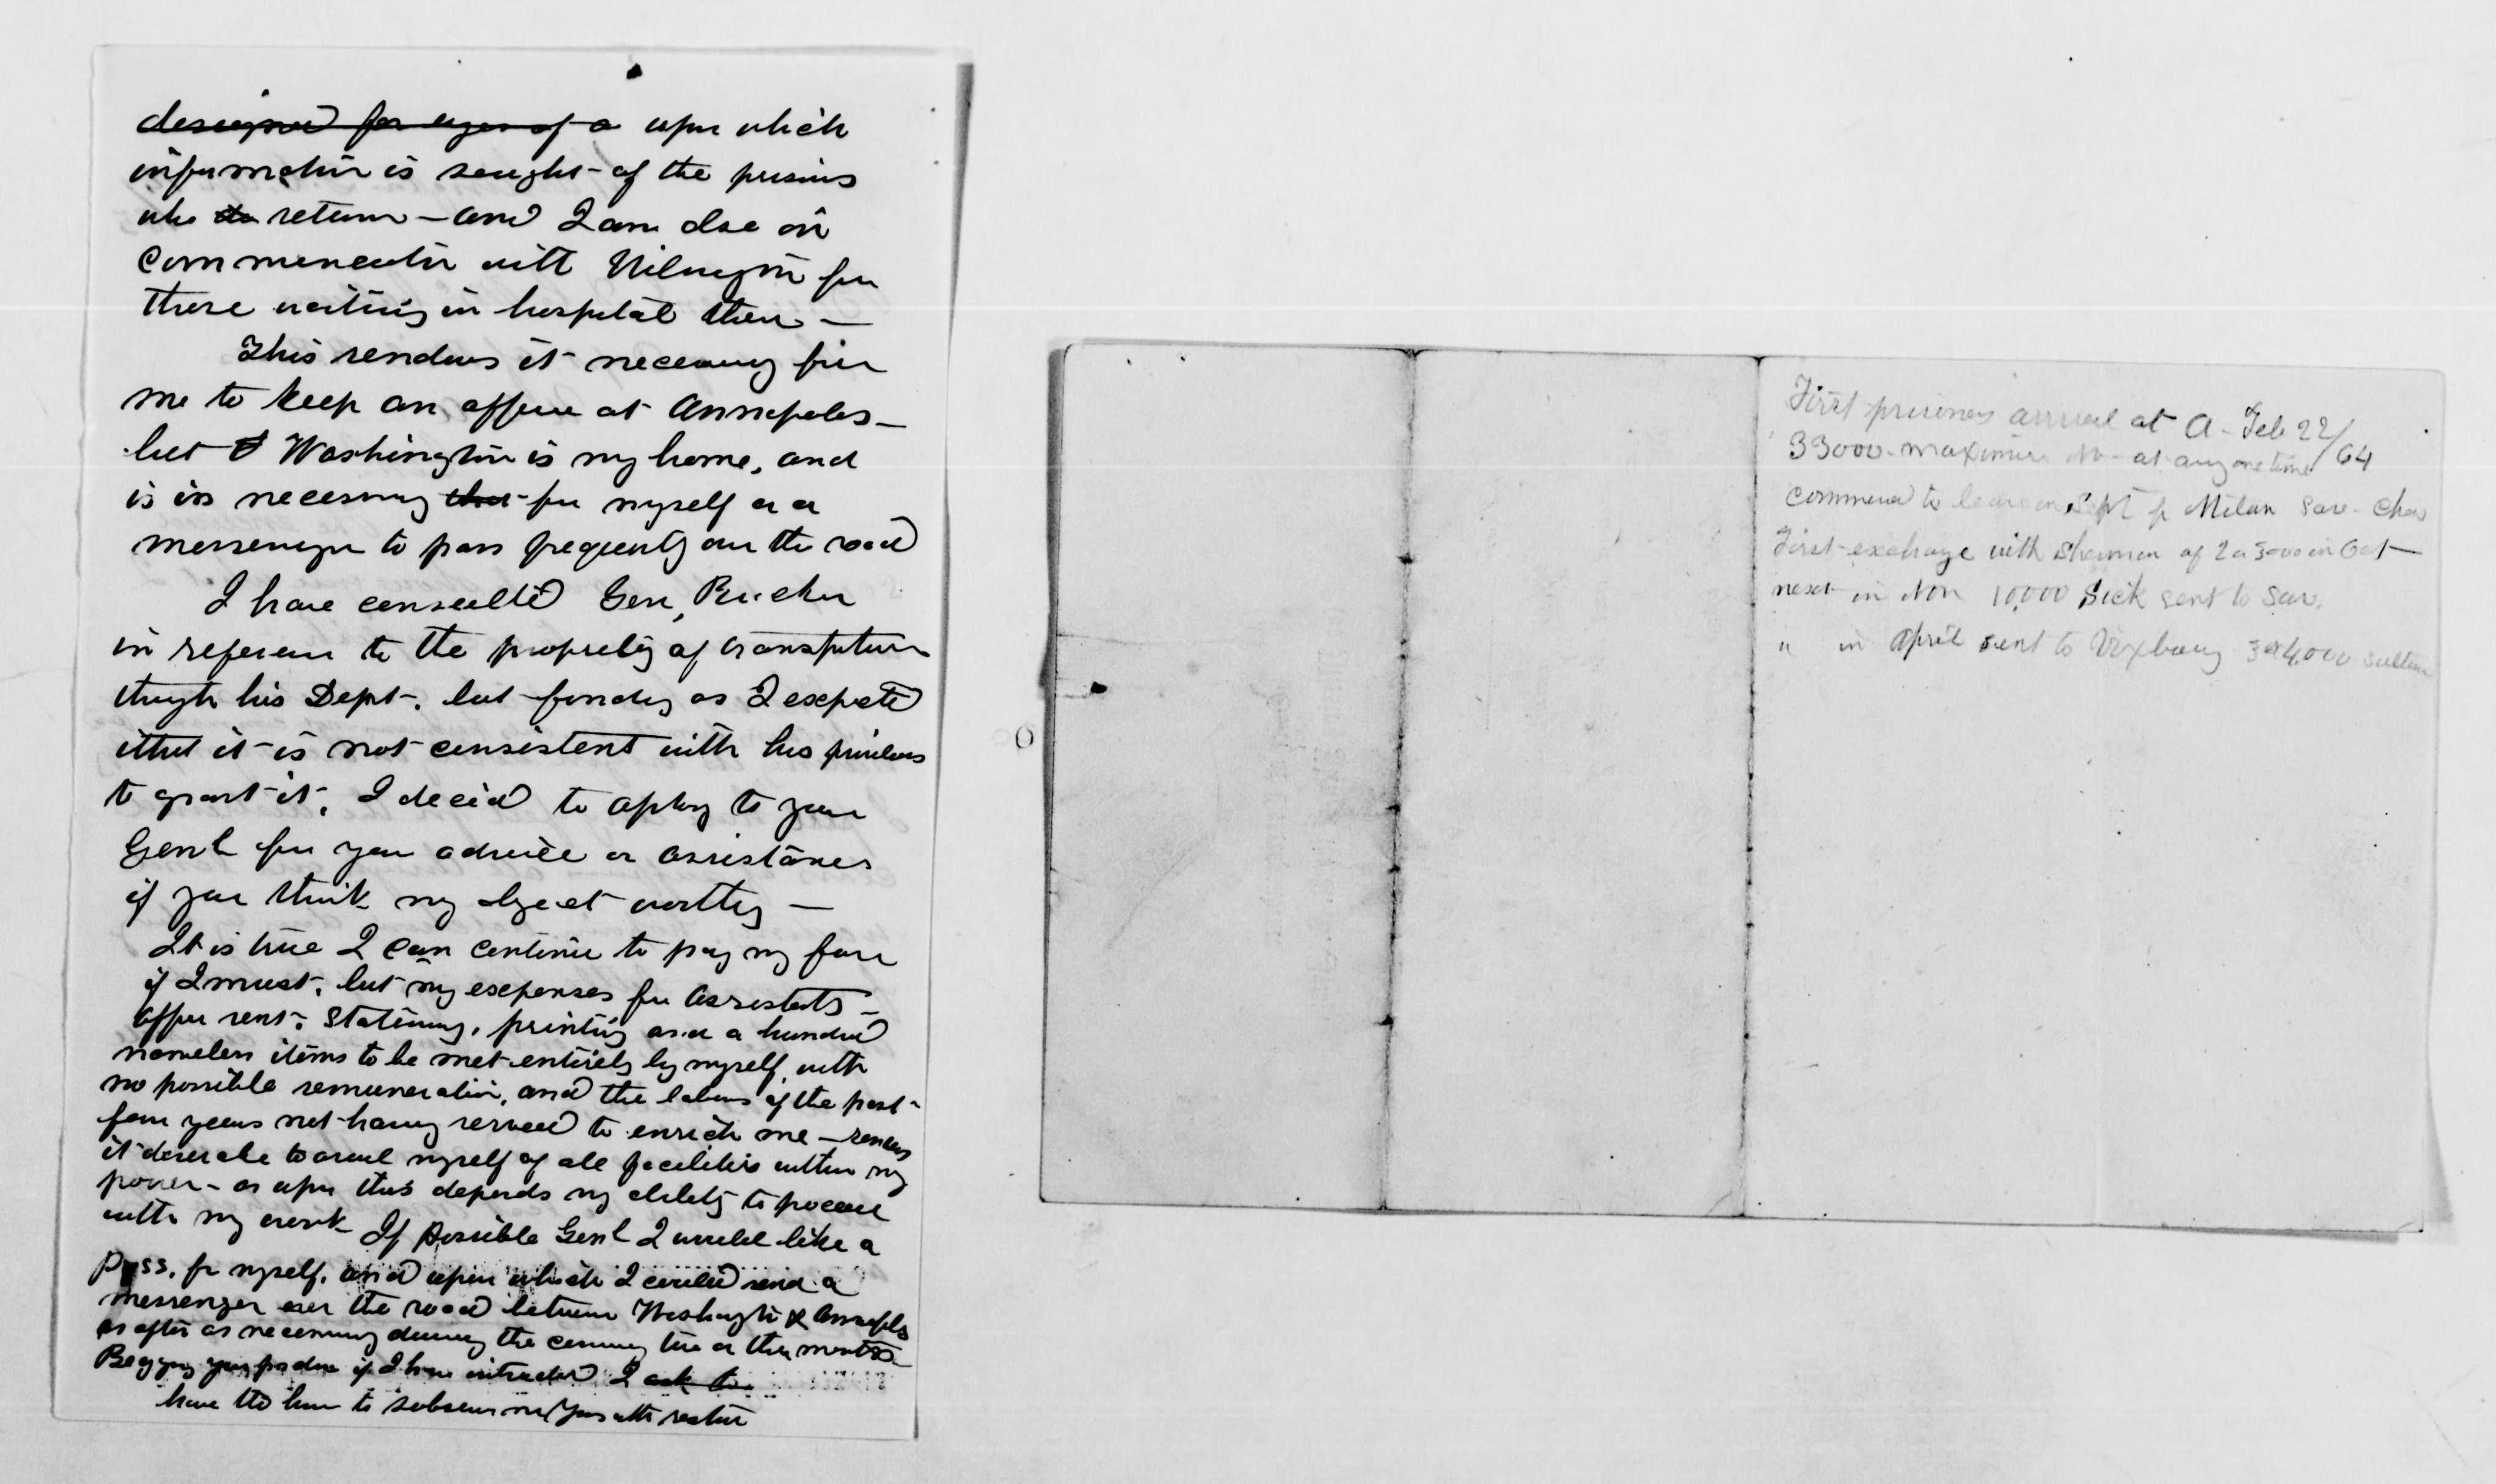 designed for eyes of a upon which
information is sought - of the prisons
who do return - and I am also in
communication with Wilmington for
those waiting in hospital there —
This renders it necessary for
me to keep an office at Annapolis —
but Washington is my home, and
is it is necessary that for myself or a
messenger to pass frequently over the road
I have consulted Gen, Rucker
in reference to the propriety of transportation
through his Dept. but finding as I expected
that it is not consistent with his
to grant it, I decid to apply to you
Genl for your advice or assistance
if you think my object worthy —
It is true I can continue to pay my fare
if I must, but my expenses for assistants —
office rent, stationery, printing and a hundred
nameless items to be met entirely by myself with
no possible remuneration, and the labors of the past
four years not having served to enrich me — renders
it desirable to avail myself of all facilities within my
power - as upon this depends my ability to proceed
with my work If possible Genl I would like a
pass, for myself, and upon which I could send a
messenger over the road between Washington & Annapolis
as often as necessary during the coming two or three months —
Begging your pardon if I have intruded I ask to
have the honor to subscribe
First prisoners arrived at A - Feb 22/64
33000 - maximum No - at any one time
commenced to leave in Sept for Milan Sav - Chas
First exchange with Sherman of 2 or 3000 in Oct —
next in Nov 10,000 Sick sent to Sav.
" in April sent to Vixburg 3 or 4,000